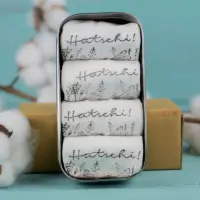 Hatschi!
Hatschi!
Hatschi!
Hatschi!